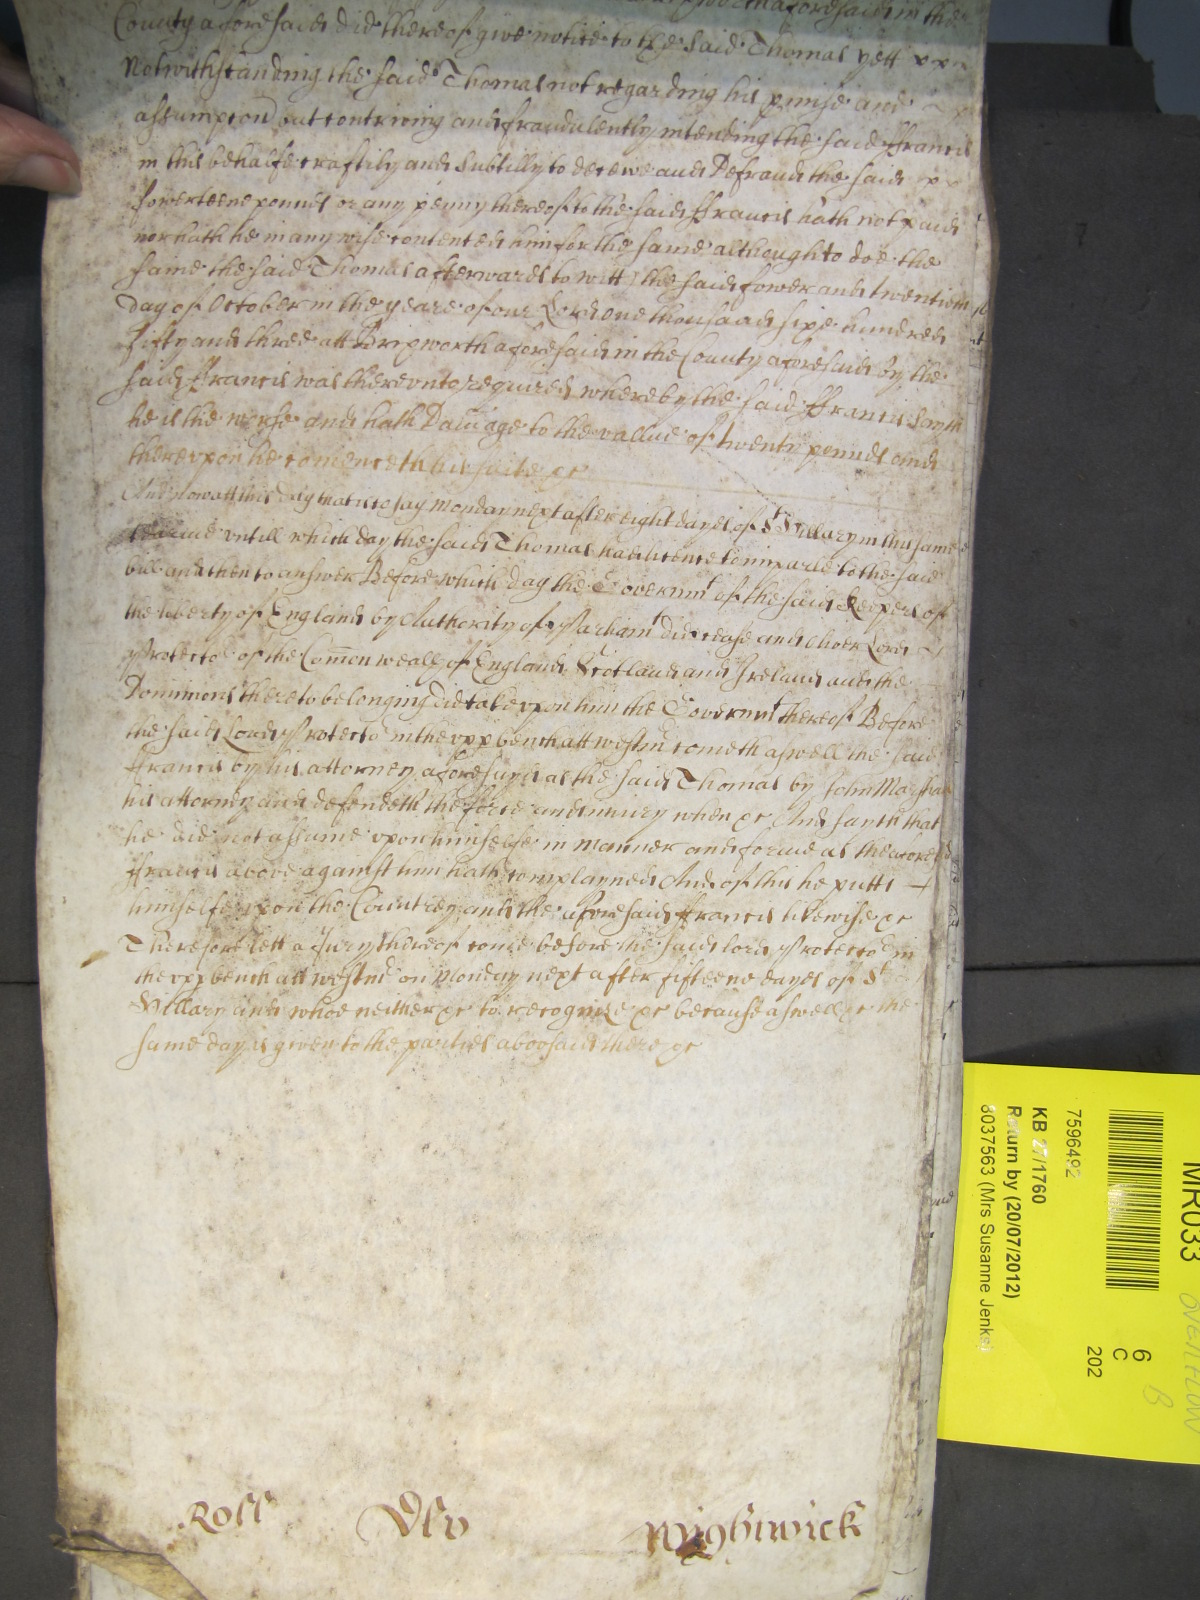 aforesaid in the
County aforesaid did thereof give notice to the said Thomas yett
Notwithstanding the said Thomas not regarding his pmise and
assumpcon but contriving and fraudulently intending the said Ffrancis
in this behalfe craftily and subtilly to deceive and Defraud the said
fowerteene pounds or any penny thereof to the said Ffrancis hath not paid
nor hath he in any wise contented him for the same although to doe the
same the said Thomas afterwards to witt the said fower and twentieth
day of October in the yeare of our Lord one thousand sixe hundred
Fifty and three att Brixworth aforesaid in the County aforesaid by the
said Ffrancis was therevnto required whereby the said Ffrancis sayth
he is the worse and hath Damage to the vallue of twenty pounds and
therevpon he comenceth his suite &c
And now att this day that is to say monday next after eight dayes of St Hillary in this same
tearme vntill which day the said Thomas had licence to imparle to the said
bill and then to answer Before which day the Governmt of the said Keepers of
the liberty of England by Authority of Parliamt did cease and Oliver Lord
Protector of the Comon wealth of England Scotland and Ireland and the
Dominions thereto belonging did take vpon him the Governmt thereof Before
the said Lord Protector in the vpp bench att westmr cometh aswell the said
Ffrancis by his attorney aforesayd as the said Thomas by John
his attorney and defendeth the force and iniury when &c And sayth that
he did not assume vpon himselfe in manner and forme as the aforesd
Ffrancis above against him hath complayned And of this he putts
himselfe vpon the Countrey and the aforesaid Ffrancis likewise &c
Therefore lett a Jury thereof come before the said lord Protector in
the vpp bench att westmr on Monday next after fifteene dayes of St
Hillary and whoe neither &c to recognize &c because aswell &c the
same day is given to the parties abovesaid there &c
Roll
Wightwick
MR033
OVERFLOW
B
6
C
202
7596492
KB 27/1760
Return by (20/07/2012)
8037563 (Mrs Susanne Jenks)